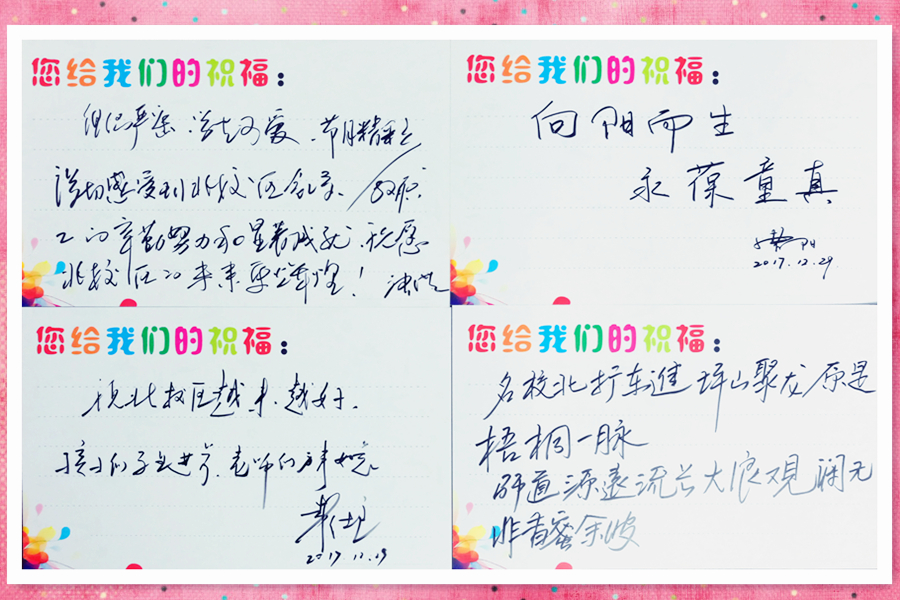 您给我们的祝福：
组织严密、学生可爱、节目精彩
深切感受到北校区全景／教职
工的辛勤努力和显著成就，祝愿
北校区的未来更辉煌！
您给我们的祝福：
向阳而生
永葆童真
阳
2017.12.29
您给我们的祝福：
祝北校区越来越好。
孩子们学业进步、老师们万事如意
2017.12.29
您给我们的祝福：
名校北折车進 坪山聚龙原是
梧桐一脉
研道源远流长大浪观澜无
非香蜜余波